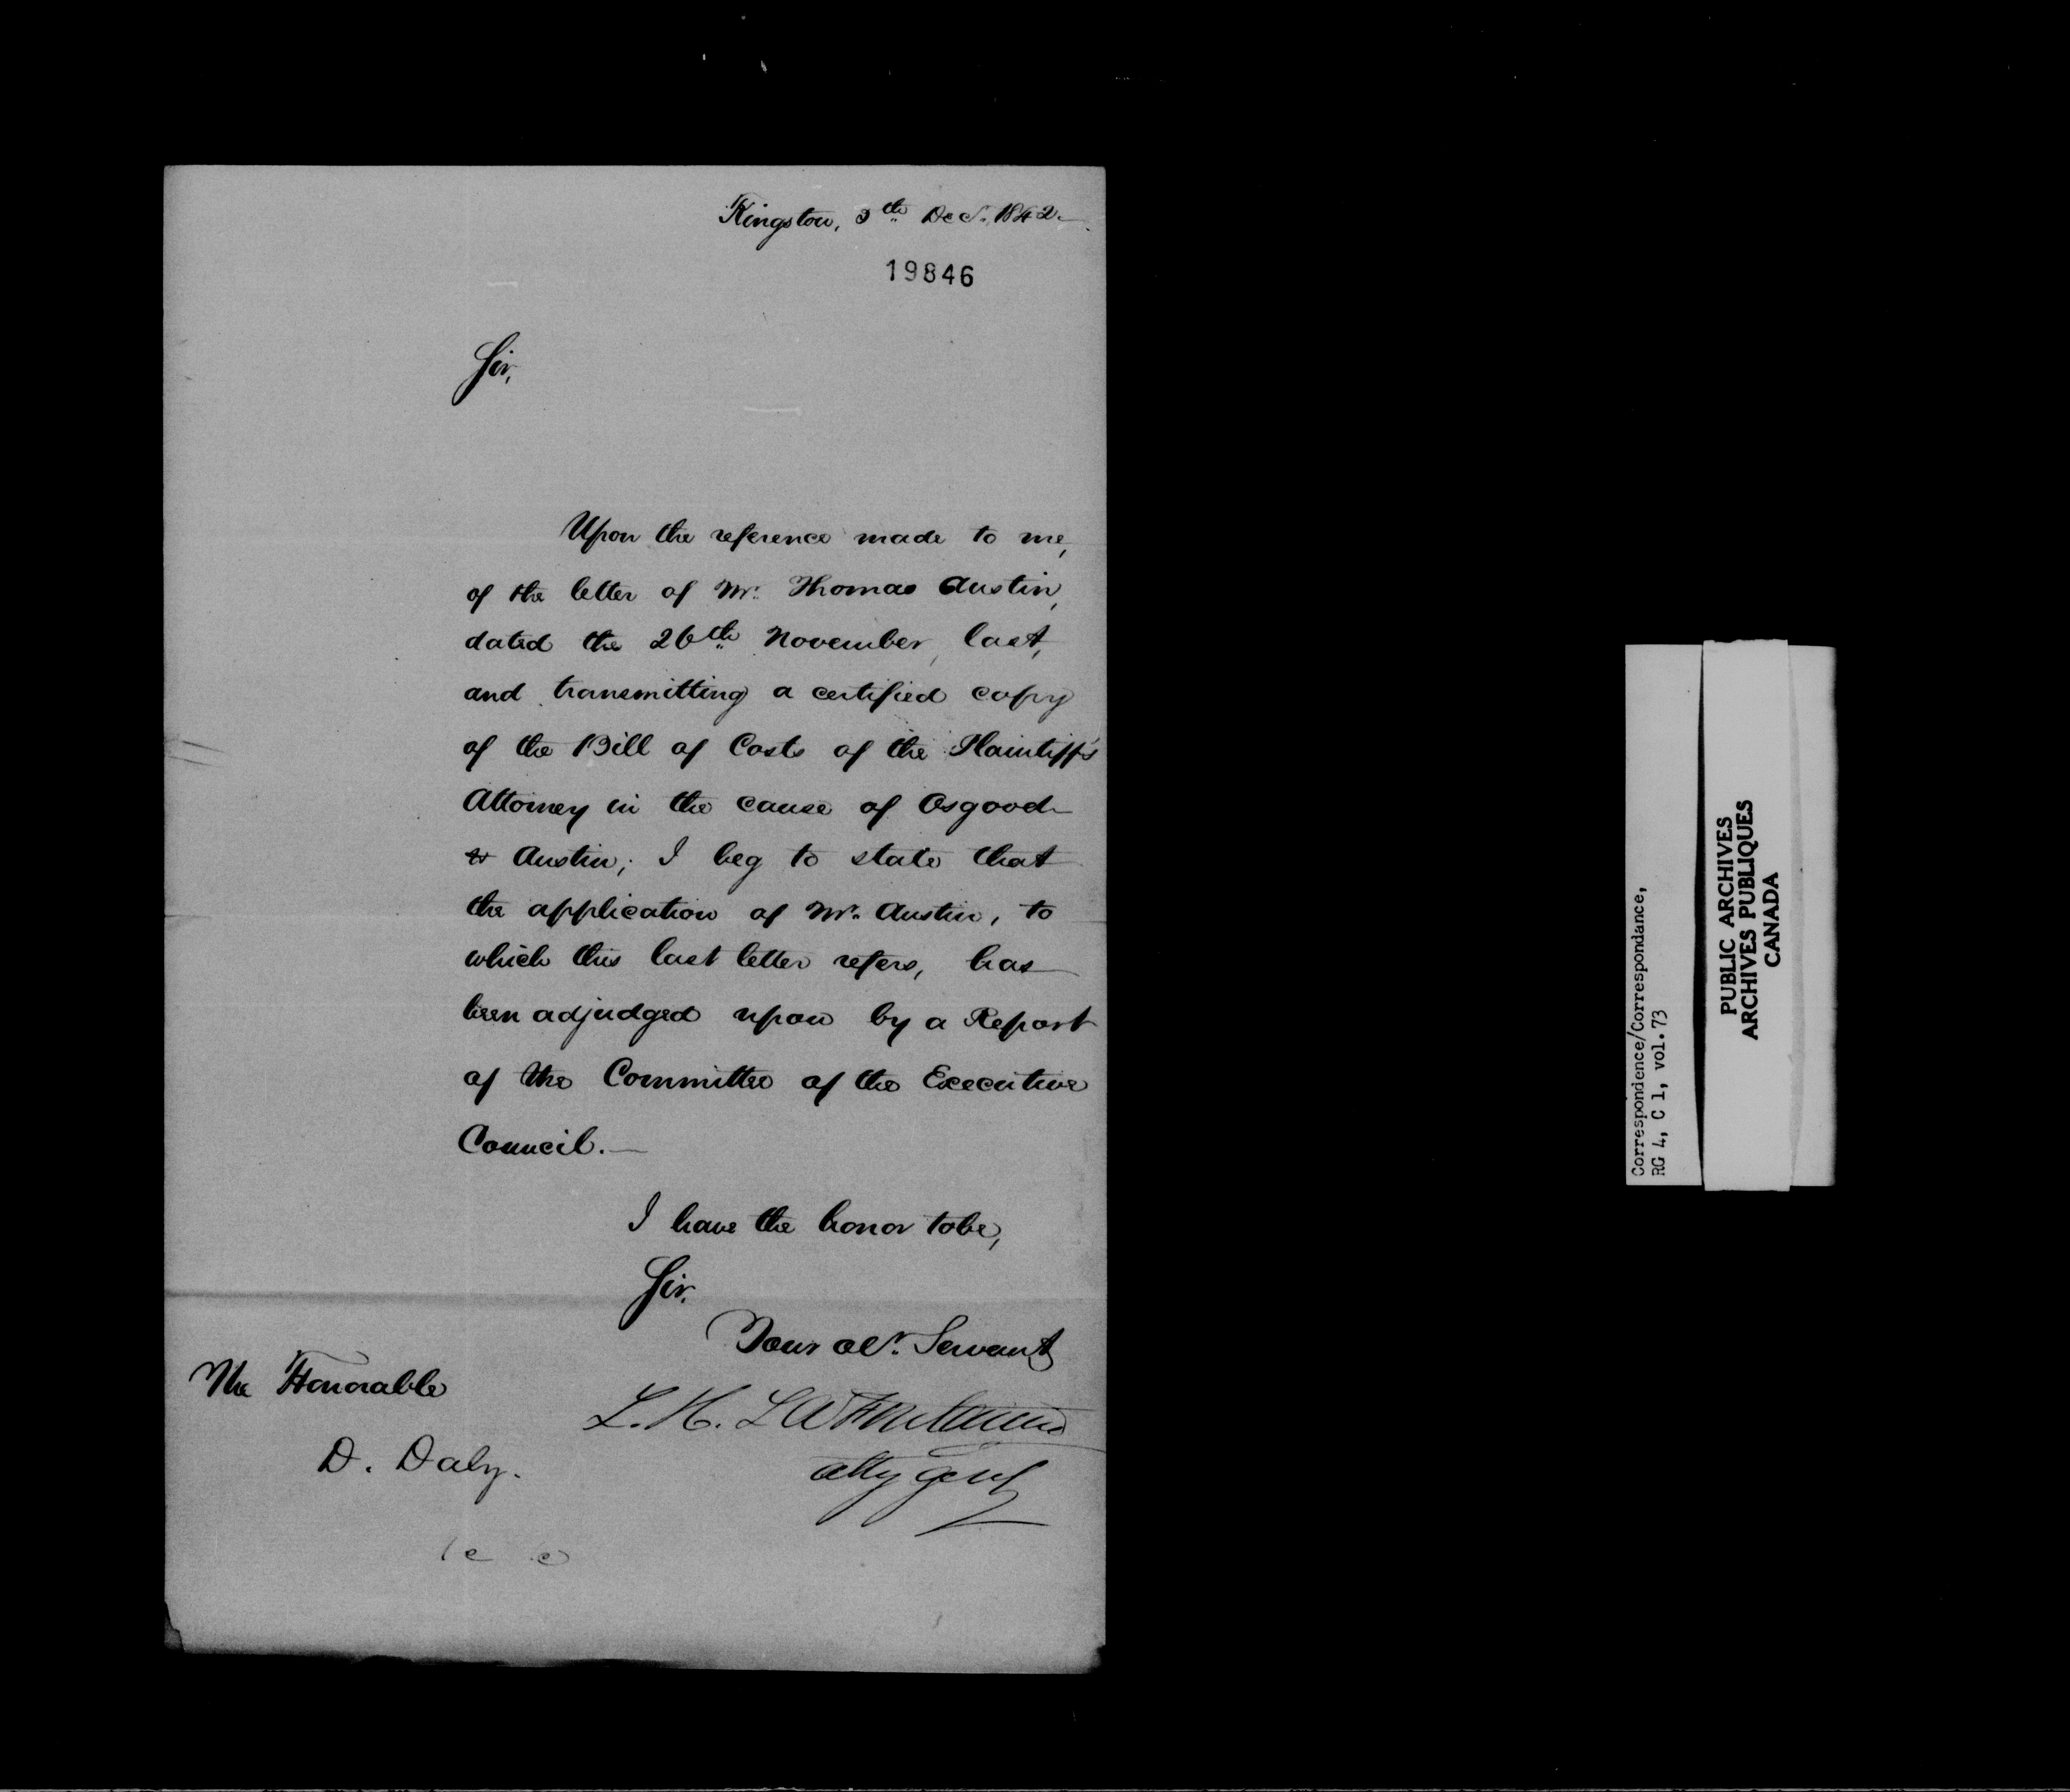 Kingston, 5th Dec. 1842
19846
Sir,
Upon the reference made to me,
of the letter of Mr. Thomas Austin,
dated the 26th November, last,
and transmitting a certified copy
of the Bill of Costs of the Plaintiff's
Attorney in the cause of Osgood
vs Austin; I beg to state that
the application of Mr. Austin, to
which this last letter refers, has
been adjudged upon by a Report
of the Committee of the Executive
Council.—
I have the honor to be,
Sir,
Your obt. Servant
L. H. LaFontaine
Atty Genl
The Honorable
D. Daly.
Correspondence/Correspondance,
RG 4, C 1, vol. 73
PUBLIC ARCHIVES
ARCHIVES PUBLIQUES
CANADA